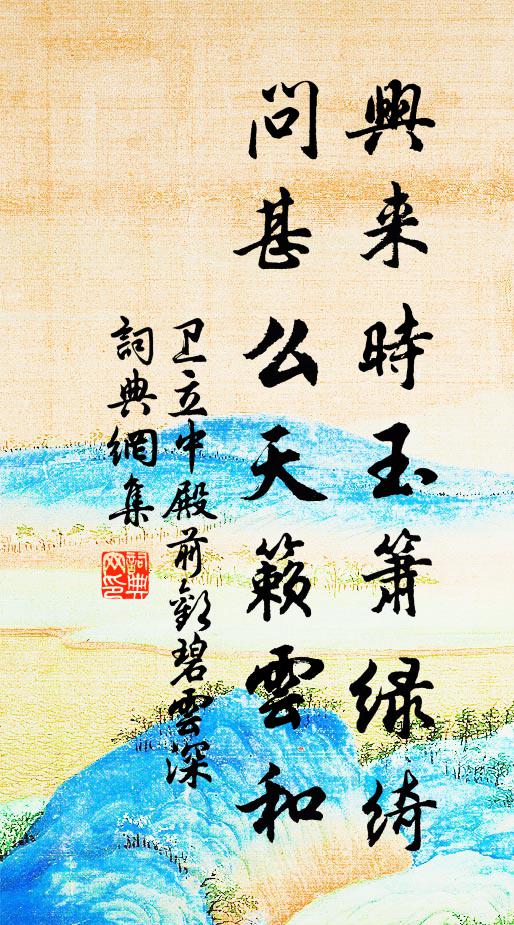 興来時玉簫绿綺
問甚么天籟雲和
卫立中殿前歡碧雲深
詞典網集
詞典